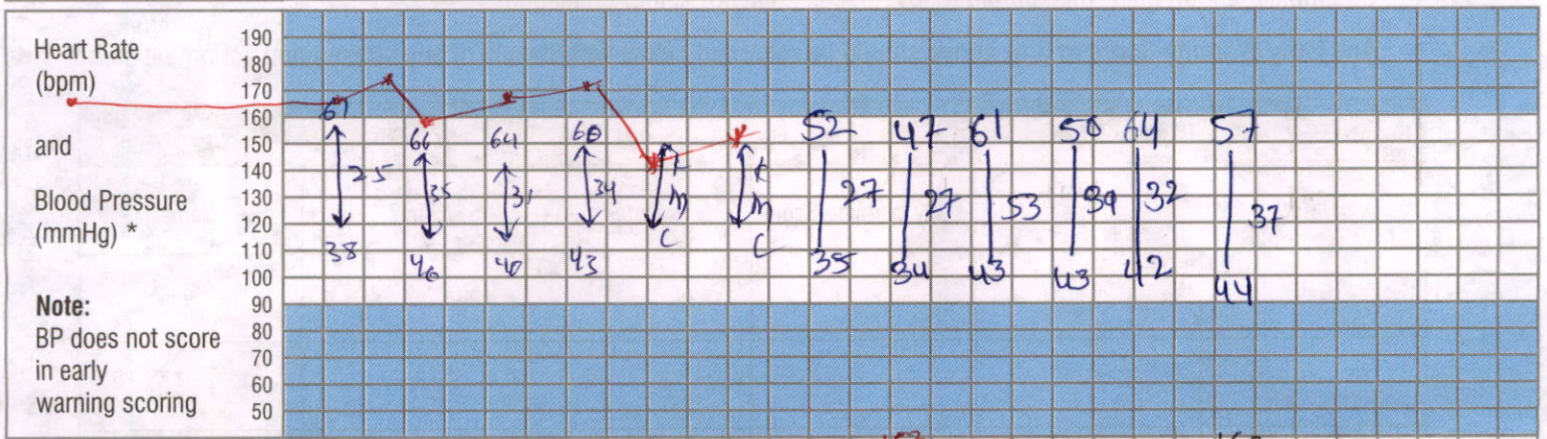 Heart Rate
(bpm)
and
Blood Pressure
(mmHg) *
Note:
BP does not score
in early
warning scoring
190
180
170
160
150
140
130
120
110
100
90
80
70
60
50
67 25 38
66 35 46
64 31 40
60 34 43
52 27 35
47 27 34
61 53 43
50 39 43
64 32 42
57 37 44